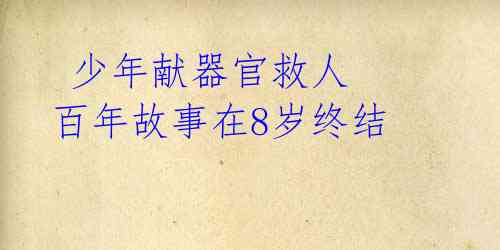 少年献器官救人
百年故事在8岁终结